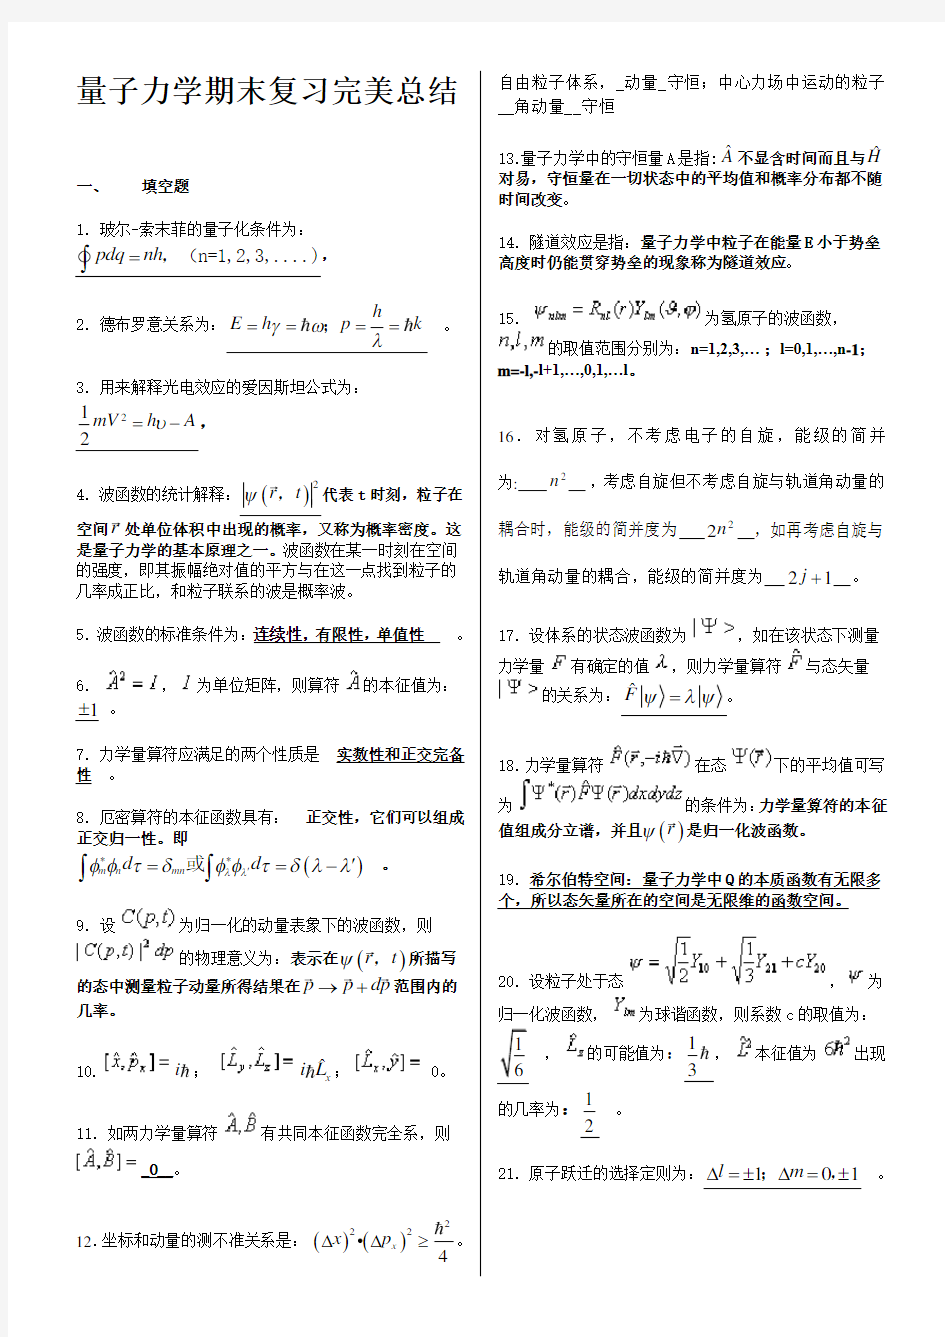 量子力学期末复习完美总结
一、 填空题
1. 玻尔-索末菲的量子化条件为:
∮pdq = nh, (n=1,2,3,....),
2. 德布罗意关系为: E = hγ = ħω; p = h/λ = ħk 。
3. 用来解释光电效应的爱因斯坦公式为:
1/2 mV² = hυ − A,
4. 波函数的统计解释: |ψ(r⃗, t)|² 代表 t 时刻, 粒子在
空间 r⃗ 处单位体积中出现的概率, 又称为概率密度。这
是量子力学的基本原理之一。波函数在某一时刻在空间
的强度, 即其振幅绝对值的平方与在这一点找到粒子的
几率成正比, 和粒子联系的波是概率波。
5. 波函数的标准条件为: 连续性, 有限性, 单值性 。
6. Â² = I, I 为单位矩阵, 则算符 Â 的本征值为:
±1 。
7. 力学量算符应满足的两个性质是 实数性和正交完备
性 。
8. 厄密算符的本征函数具有: 正交性, 它们可以组成
正交归一性。即
∫φ*ₘφₙdτ = δₘₙ 或 ∫φ*_λ φ_λ′ dτ = δ(λ − λ′) 。
9. 设 C(p,t) 为归一化的动量表象下的波函数, 则
|C(p,t)|² dp 的物理意义为: 表示在 ψ(r⃗, t) 所描写
的态中测量粒子动量所得结果在 p⃗ → p⃗ + dp⃗ 范围内的
几率。
10. [x̂, p̂ₓ] = iħ; [L̂_y, L̂_z] = iħL̂ₓ; [L̂ₓ, ŷ] = 0。
11. 如两力学量算符 Â, B̂ 有共同本征函数完全系, 则
[Â, B̂] = _0__。
12. 坐标和动量的测不准关系是: (Δx)²•(Δpₓ)² ≥ ħ²/4。
自由粒子体系, _动量_守恒; 中心力场中运动的粒子
__角动量__守恒
13.量子力学中的守恒量 A 是指: Â 不显含时间而且与 Ĥ
对易, 守恒量在一切状态中的平均值和概率分布都不随
时间改变。
14. 隧道效应是指: 量子力学中粒子在能量 E 小于势垒
高度时仍能贯穿势垒的现象称为隧道效应。
15. ψ_nlm = R_nl(r)Y_lm(ϑ,φ) 为氢原子的波函数,
n,l,m 的取值范围分别为: n=1,2,3,… ; l=0,1,…,n-1;
m=-l,-l+1,…,0,1,…l。
16. 对氢原子, 不考虑电子的自旋, 能级的简并
为: ___n²__ , 考虑自旋但不考虑自旋与轨道角动量的
耦合时, 能级的简并度为 ___2n²__, 如再考虑自旋与
轨道角动量的耦合, 能级的简并度为 __2j+1__。
17. 设体系的状态波函数为 |Ψ>, 如在该状态下测量
力学量 F 有确定的值 λ, 则力学量算符 F̂ 与态矢量
|Ψ> 的关系为: F̂|ψ⟩ = λ|ψ⟩。
18. 力学量算符 F̂(r⃗,−iħ∇⃗) 在态 Ψ(r⃗) 下的平均值可写
为 ∫Ψ*(r⃗)F̂Ψ(r⃗)dxdydz 的条件为: 力学量算符的本征
值组成分立谱, 并且 ψ(r⃗) 是归一化波函数。
19. 希尔伯特空间: 量子力学中 Q 的本质函数有无限多
个, 所以态矢量所在的空间是无限维的函数空间。
20. 设粒子处于态 ψ = √(1/2) Y₁₀ + √(1/3) Y₂₁ + cY₂₀ , ψ 为
归一化波函数, Y_lm 为球谐函数, 则系数 c 的取值为:
√(1/6) , L̂_z 的可能值为: 1/3 ħ , L̂² 本征值为 6ħ² 出现
的几率为: 1/2 。
21. 原子跃迁的选择定则为: Δl = ±1; Δm = 0,±1 。